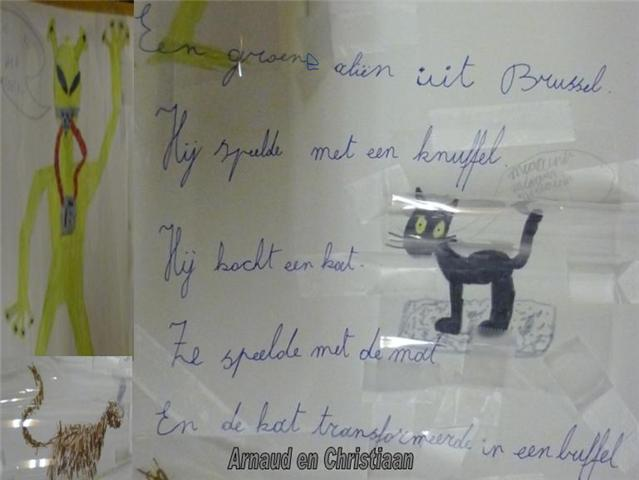 Een groene aliën uit Brussel.
Hij speelde met een knuffel.
Hij kocht een kat.
Ze speelde met de mat
En de kat transformeerde in een buffel
Arnaud en Christiaan